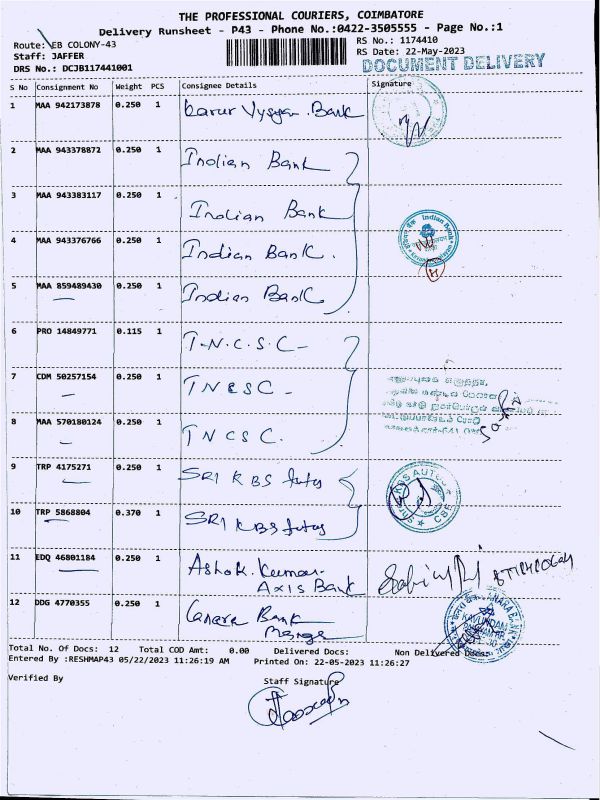 THE PROFESSIONAL COURIERS, COIMBATORE
Delivery Runsheet - P43 - Phone No.:0422-3505555 - Page No.:1
Route: EB COLONY-43
RS No.: 1174410
Staff: JAFFER
RS Date: 22-May-2023
DRS No.: DCJB117441001
DOCUMENT DELIVERY
S No Consignment No Weight PCS Consignee Details Signature
1 MAA 942173878 0.250 1 Karur Vysya Bank
2 MAA 943378872 0.250 1 Indian Bank
3 MAA 943383117 0.250 1 Indian Bank
4 MAA 943376766 0.250 1 Indian Bank.
Indian Bank
5 MAA 859489430 0.250 1 Indian Bank
6 PRO 14849771 0.115 1 T.N.C.S.C-
7 CDM 50257154 0.250 1 TNCSC-
8 MAA 570180124 0.250 1 TNCSC.
9 TRP 4175271 0.250 1 SRI KBS
10 TRP 5868804 0.370 1 SRI KBS
KBS AUTO
CBE
11 EDQ 46801184 0.250 1 Ashok. Kumar-
Axis Bank
12 DDG 4770355 0.250 1 Canara Bank
Total No. Of Docs: 12 Total COD Amt: 0.00 Delivered Docs: Non Delivered Docs:
Entered By :RESHMAP43 05/22/2023 11:26:19 AM Printed On: 22-05-2023 11:26:27
Verified By Staff Signature